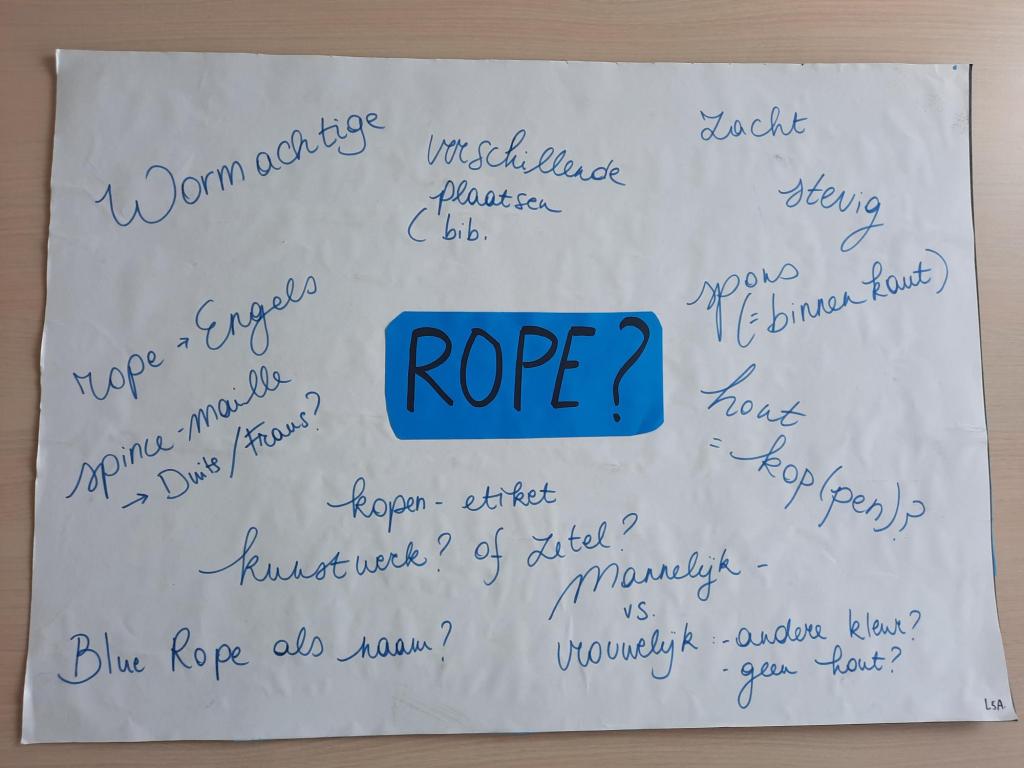 Wormachtige
verschillende
plaatsen
( bib.
zacht
stevig
spons
(= binnenkant)
rope → Engels
ROPE?
spince-maille
→ Duits/Frans?
hout
= kop(pen)?
kopen - etiket
kunstwerk? of zetel?
Mannelijk -
vs.
vrouwelijk : - andere kleur?
- geen hout?
Blue Rope als naam?
L5A.